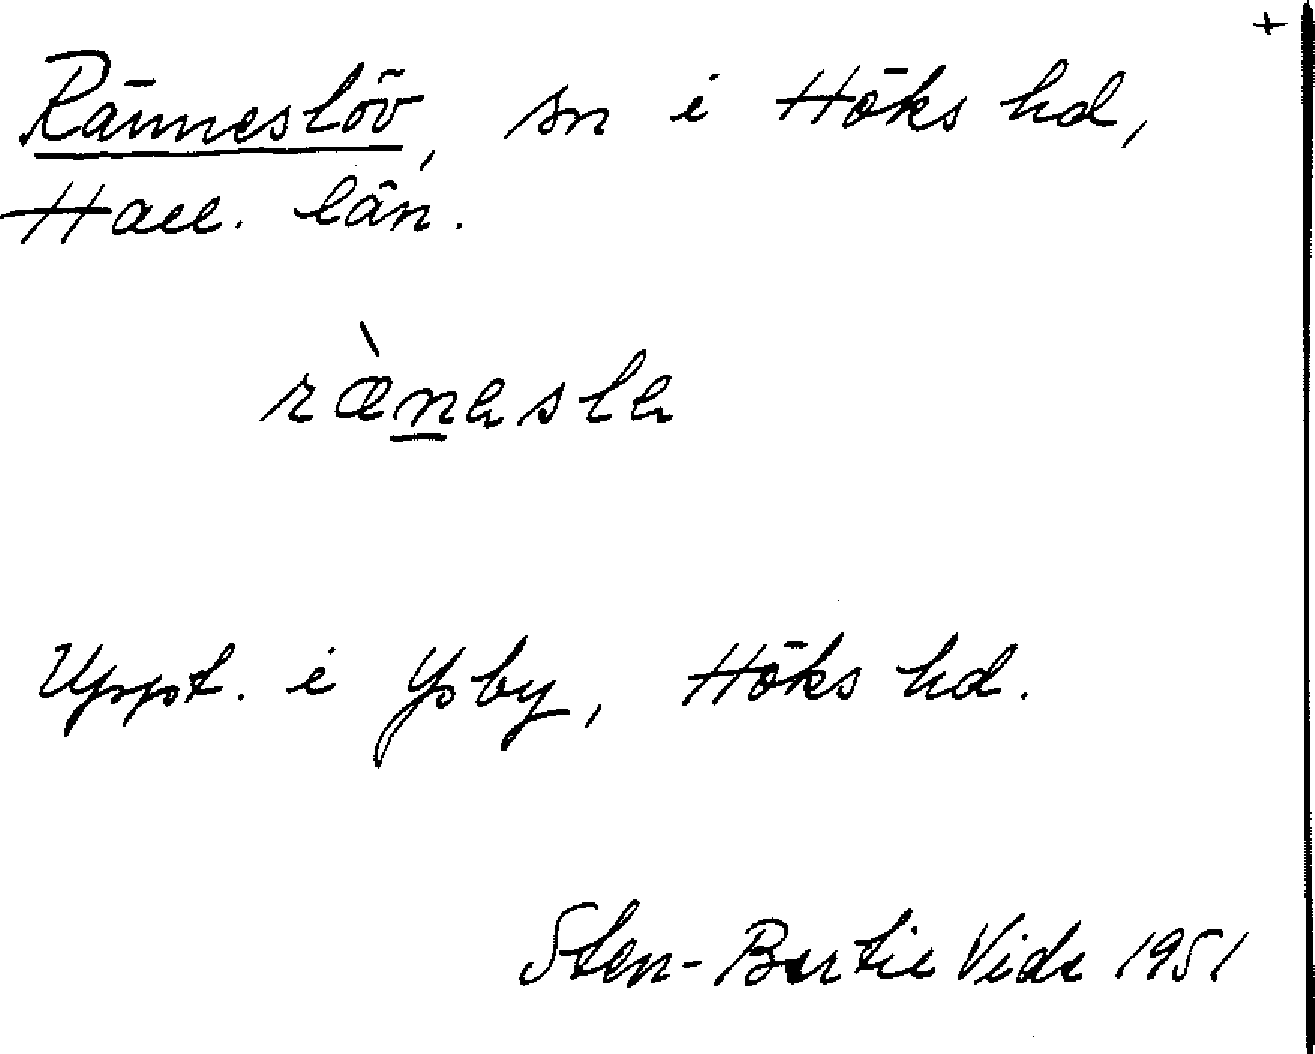 +
Ränneslöv, sn i Höks hd,
Hall. län.
ràn̲ɐslɐ
Uppt. i Ysby, Höks hd.
Sten-Bertil Vide 1951